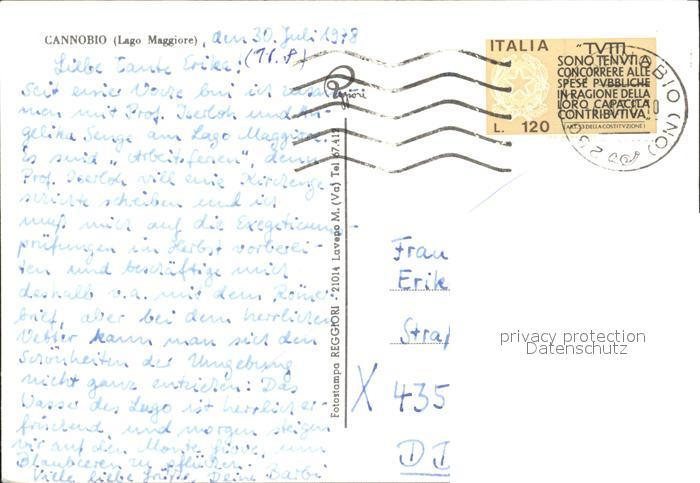 CANNOBIO (Lago Maggiore), den 30. Juli 1978
(11.8)
Liebe Tante Erika!
Seit einer Woche bin ich zusam-
men mit Prof. Iserloh und An-
gelika Senge am Lago Maggiore.
Es sind "Arbeitsferien", denn
Prof. Iserloh will eine Kirchenge-
schichte schreiben und ich
muß mich auf die Exegeticum-
prüfungen im Herbst vorberei-
ten und beschäftige mich
deshalb v.a. mit dem Römer-
brief, aber bei dem herrlichen
Wetter kann man sich den
Schönheiten der Umgebung
nicht ganz entziehen: Das
Wasser des Lago ist herrlich er-
frischend und morgen steigen
wir auf den Monte, um
Blaubeeren zu pflücken.
Viele liebe Grüße, Deine Barbi
Reggiori
Fotostampa REGGIORI - 21014 Laveno M. (Va) Tel. 67.412
ITALIA
"TUTTI
SONO TENUTI A
CONCORRERE ALLE
SPESE PUBBLICHE
IN RAGIONE DELLA
LORO CAPACITÀ
CONTRIBUTIVA."
(ART. 53 DELLA COSTITUZIONE)
L. 120
(NO)
Frau
Erik
Straß
X 435
D
privacy protection
Datenschutz